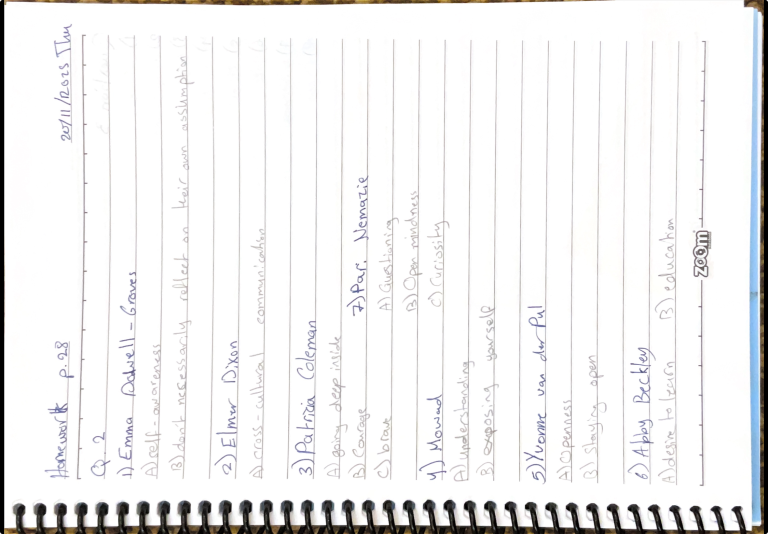 Homework p.28 20/11/2025 Thu
Q. 2
1) Emma Dalwell - Groves
A) self-awareness
B) don't necessarily reflect on their own assumption
2) Elmer Dixon
A) cross-cultural communication
3) Patricia Coleman
A) going deep inside
B) Courage
C) brave
4) Mowad
A) understanding
B) exposing yourself
5) Yvonne van der Pul
A) Openness
B) Staying open
6) Abby Beckley
A) desire to learn B) education
7) Pari Nemazie
A) Questioning
B) Open mindness
C) Curiosity
zoom